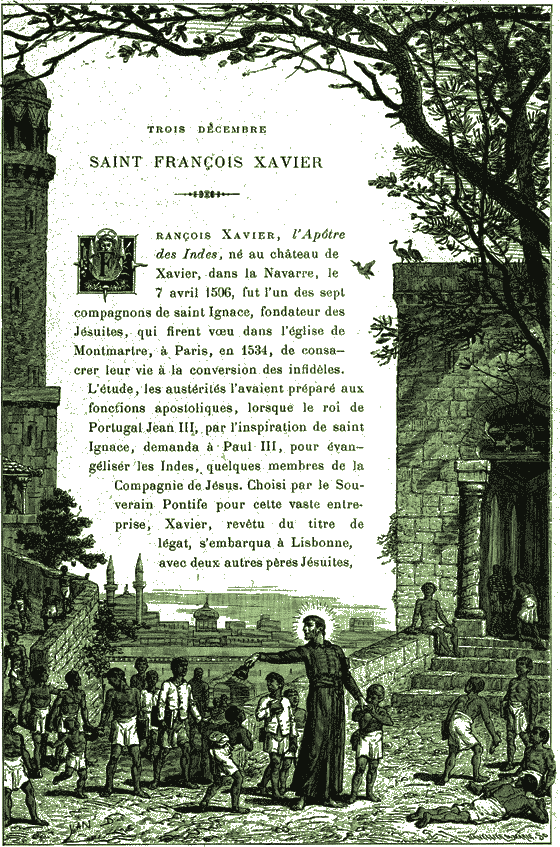 TROIS DÉCEMBRE
SAINT FRANÇOIS XAVIER
FRANÇOIS XAVIER, l'Apôtre
des Indes, né au château de
Xavier, dans la Navarre, le
7 avril 1506, fut l'un des sept
compagnons de saint Ignace, fondateur des
Jésuites, qui firent vœu dans l'église de
Montmartre, à Paris, en 1534, de consa-
crer leur vie à la conversion des infidèles.
L'étude, les austérités l'avaient préparé aux
fonctions apostoliques, lorsque le roi de
Portugal Jean III, par l'inspiration de saint
Ignace, demanda à Paul III, pour évan-
géliser les Indes, quelques membres de la
Compagnie de Jésus. Choisi par le Sou-
verain Pontife pour cette vaste entre-
prise, Xavier, revêtu du titre de
légat, s'embarqua à Lisbonne,
avec deux autres pères Jésuites,